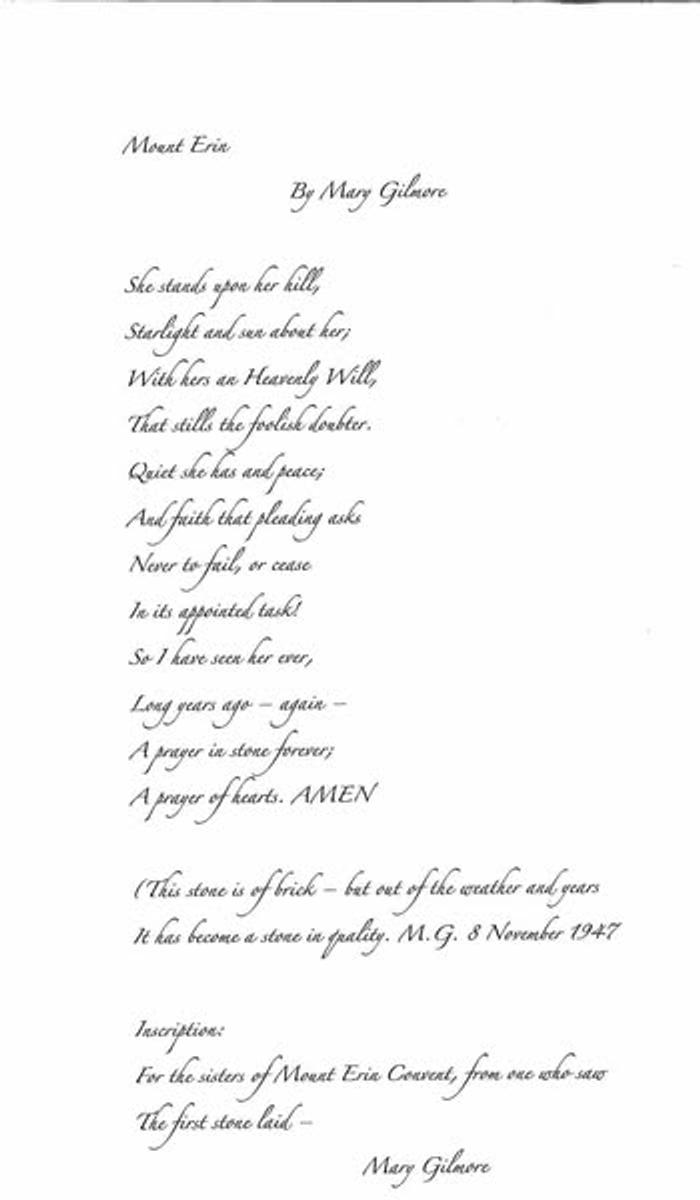 Mount Erin
By Mary Gilmore
She stands upon her hill,
Starlight and sun about her;
With hers an Heavenly Will,
That stills the foolish doubter.
Quiet she has and peace;
And faith that pleading asks
Never to fail, or cease
In its appointed task!
So I have seen her ever,
Long years ago – again –
A prayer in stone forever;
A prayer of hearts. AMEN
(This stone is of brick – but out of the weather and years
It has become a stone in quality. M.G. 8 November 1947
Inscription:
For the sisters of Mount Erin Convent, from one who saw
The first stone laid –
Mary Gilmore